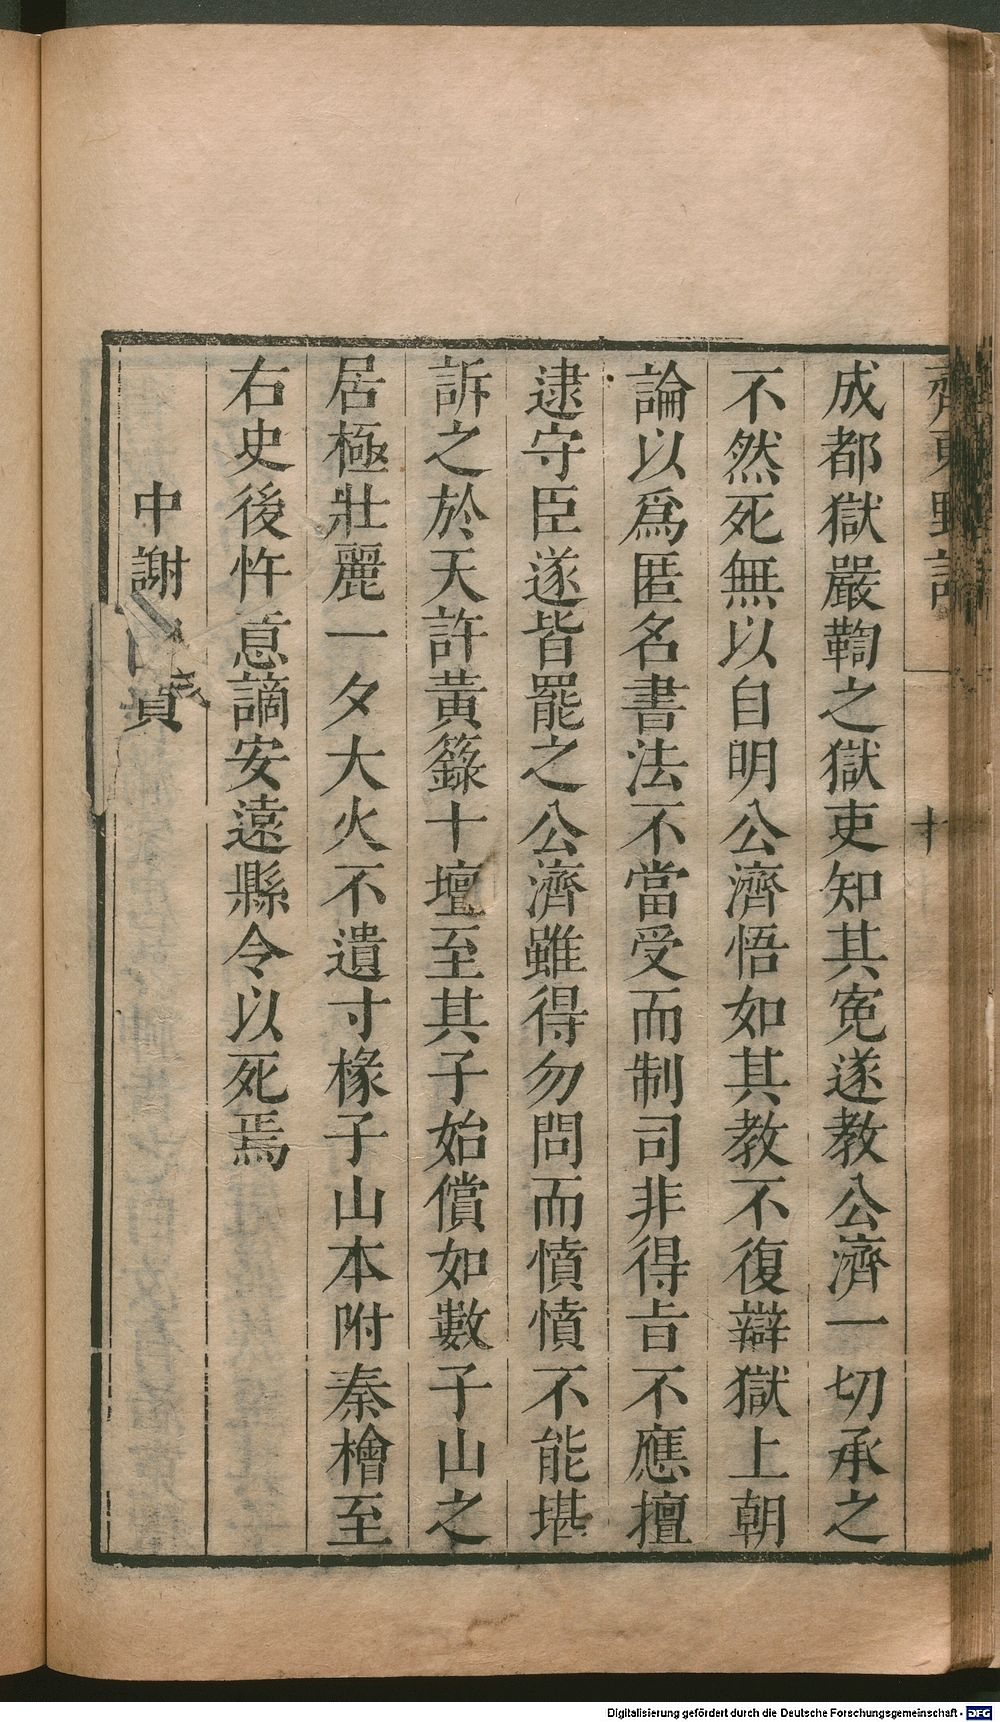 齊東野語
十
成都獄嚴鞫之獄吏知其寃遂教公濟一切承之
不然死無以自明公濟悟如其教不復辯獄上朝
論以爲匿名書法不當受而制司非得㫖不應擅
逮守臣遂皆罷之公濟雖得勿問而憤憤不能堪
訴之於天許黃籙十壇至其子始償如數子山之
居極壯麗一夕大火不遺寸椽子山本附秦檜至
右史後忤意謫安遠縣令以死焉
中謝
Digitalisierung gefördert durch die Deutsche Forschungsgemeinschaft - DFG